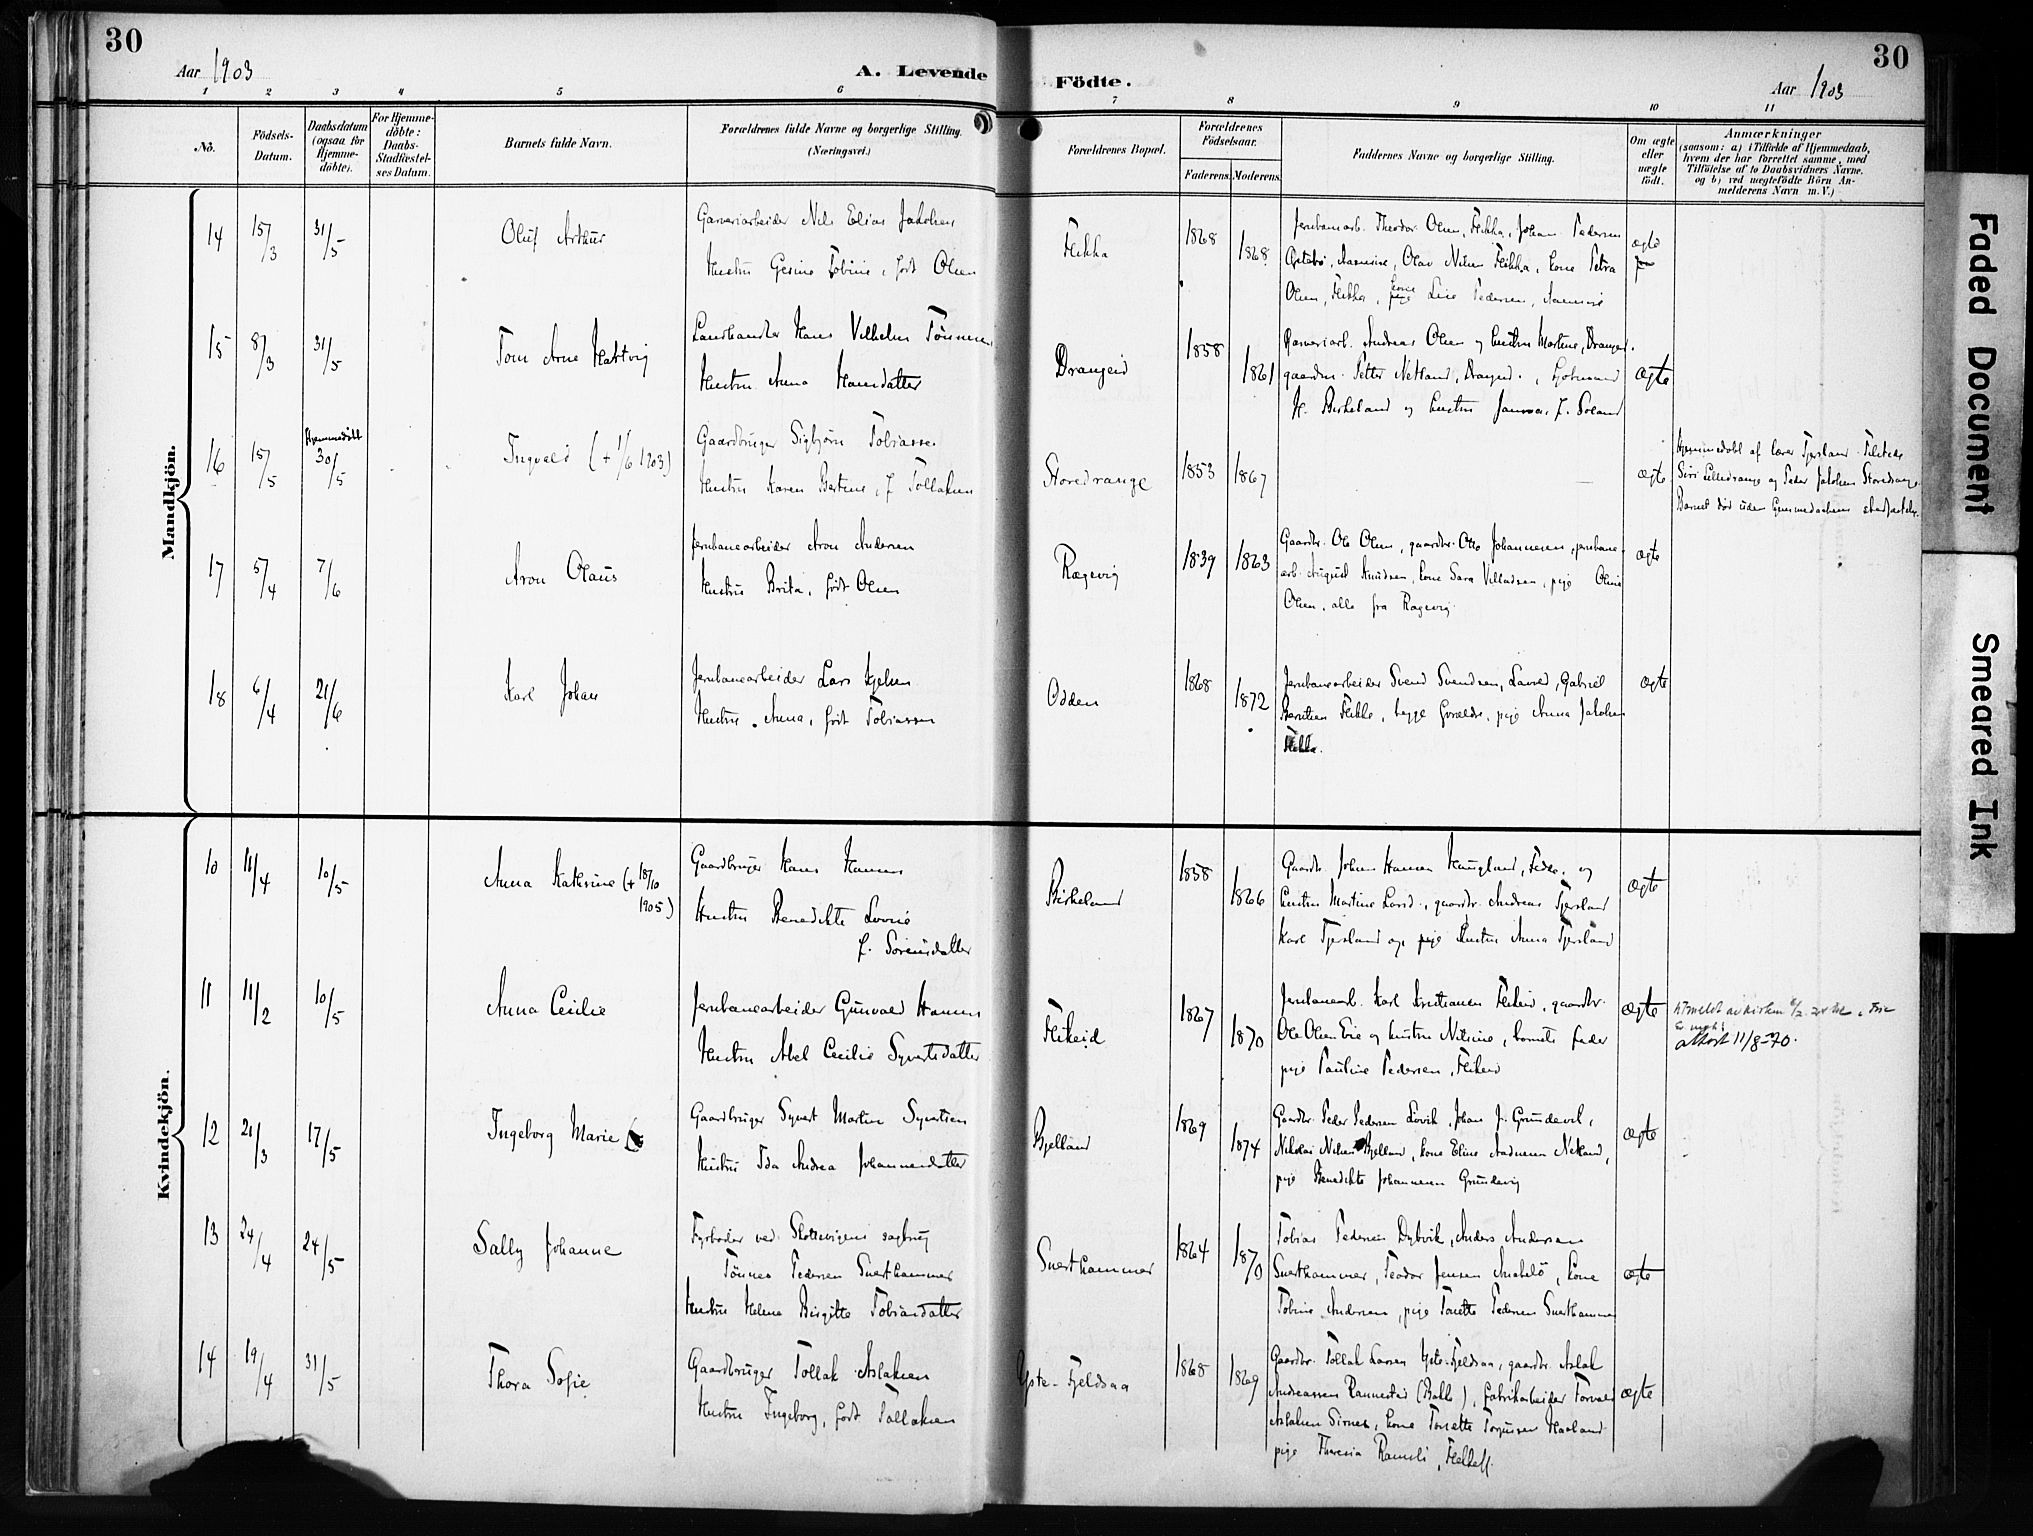 30
Aar 1903
A. Levende
1 2 3 4 5 6
No.
Födsels-Datum.
Daabsdatum (ogsaa for Hjemme-döbte).
For Hjemme-döbte: Daabs-Stadfæstel-ses Datum.
Barnets fulde Navn.
Forældrenes fulde Navne og borgerlige Stilling. (Næringsvei.)
Födte.
30
Aar 1903
7 8 9 10 11
Forældrenes Bopæl.
Forældrenes Födselsaar.
Faderens Moderens
Faddernes Navne og borgerlige Stilling.
Om ægte eller uægte födt.
Anmærkninger
(saasom: a) i Tilfælde af Hjemmedaab,
hvem der har forrettet samme, med
Tilföielse af to Daabsvidners Navne.
og b) ved uægtefödte Börn An-
melderens Navn m. V.)
Mandkjön.
14 15/3 31/5 Oluf Arthur Garveriarbeider Nils Elias Jakobsen
Hustru Gesine Tobine, født Olsen
Flikka 1868 1868
Jernbanearb. Theodor Olsen, Flikka, Johan Pedersen
Olav Nilsen Flikka, kone Petra
Olsen, Flikka, kone Line Pedersen,
ægte
15 8/3 31/5 Tom Arne Hartvig Landhandler Hans Vilhelm Tønnesen
Hustru Anna Hansdatter
Drangeid 1858 1861
Garveriarb. Andreas Olsen og hustru Martine, Drangeid.
gaardm. Petter Netland, Drangeid.,
H. Birkeland og hustru
ægte
16 15/5 Hjemmedøbt 30/5 Ingvald (+ 1/6 1903) Gaardbruger Sigbjørn Tobiassen
Hustru Karen Bertine, f. Tollaksen
Storedrange 1853 1867 ægte
Hjemmedøbt af lærer Tjersland. Tilstede
Siri Lilledrange og Peder Jakobsen Storedrange.
Barnet død uden
17 5/4 7/6 Aron Olaus Jernbanearbeider Aron Andersen
Hustru Brita, født Olsen
Rægevig 1839 1863
Gaardbr. Ole Olsen, gaardbr. Otto Johannesen, jernbane-
arb. August Knudsen, kone Sara Villadsen, pige Oline
Olsen, alle fra Rægevig
ægte
18 6/4 21/6 Karl Johan Jernbanearbeider Lars Kjelsen
Hustru Anna, født Tobiassen
Odden 1868 1872
Jernbanearbeider Svend Svendsen, Gabriel
Berntsen Flikka, begge pige Anna Jakobsen
Flikka.
ægte
Kvindekjön.
10 11/4 10/5 Anna Kathrine (+ 18/10 1905) Gaardbruger Hans Hansen
Hustru Benedikte Lovise
f. Sørensdatter
Birkeland 1858 1866
Gaardbr. Johan Hansen Haugland, Fede. og
hustru Martine Larsd., gaardbr. Andreas Tjersland
Karl Tjersland og pige hustru Anna Tjersland
ægte
11 11/2 10/5 Anna Cecilie Jernbanearbeider Gunvald Hansen
Hustru Abel Cecilie Syvertsdatter
Flikeid 1867 1870
Jernbanearb. Karl Kristiansen Flikeid, gaardbr.
Ole Olsen Eie og hustru Nilsine, barnets fader
pige Pauline Pedersen, Flikeid
ægte
Utmeldt av kirken
attest 11/8-70.
12 21/3 17/5 Ingeborg Marie Gaardbruger Syvert Martin Syvertsen
Hustru Ida Andrea Johannesdatter
Bjelland 1869 1874
Gaardbr. Peder Pedersen Lovik, Johan J. Grundevik,
Nikolai Nilsen Bjelland, kone Eline Aadnesen Netland,
pige Benedikte Johannesen Grundevig
ægte
13 24/4 24/5 Sally Johanne Fyrbøder ved sagbrug
Tønnes Pedersen Sverthammer
Hustru Helene Birgitte Tobiasdatter
Svarthammer 1864 1870
Tobias Pedersen Dybvik, Anders Andersen
Svarthammer, Teodor Jensen kone
Tobine Andersen, pige Tonette Pedersen Svarthammer
ægte
14 19/4 31/5 Thora Sofie Gaardbruger Tollak Aslaksen
Hustru Ingeborg, født Tollaksen
Yste-Fjeldsaa 1868 1869
Gaardbr. Tollak Larsen Yste-Fjeldsaa, gaardbr. Aslak
Andreassen Rannestad (Bakke), fabrikarbeider Torvald
Aslaksen Sirnes, kone Tonette Torjusen Haaland
pige Theresia
ægte
Faded Document
Smeared Ink